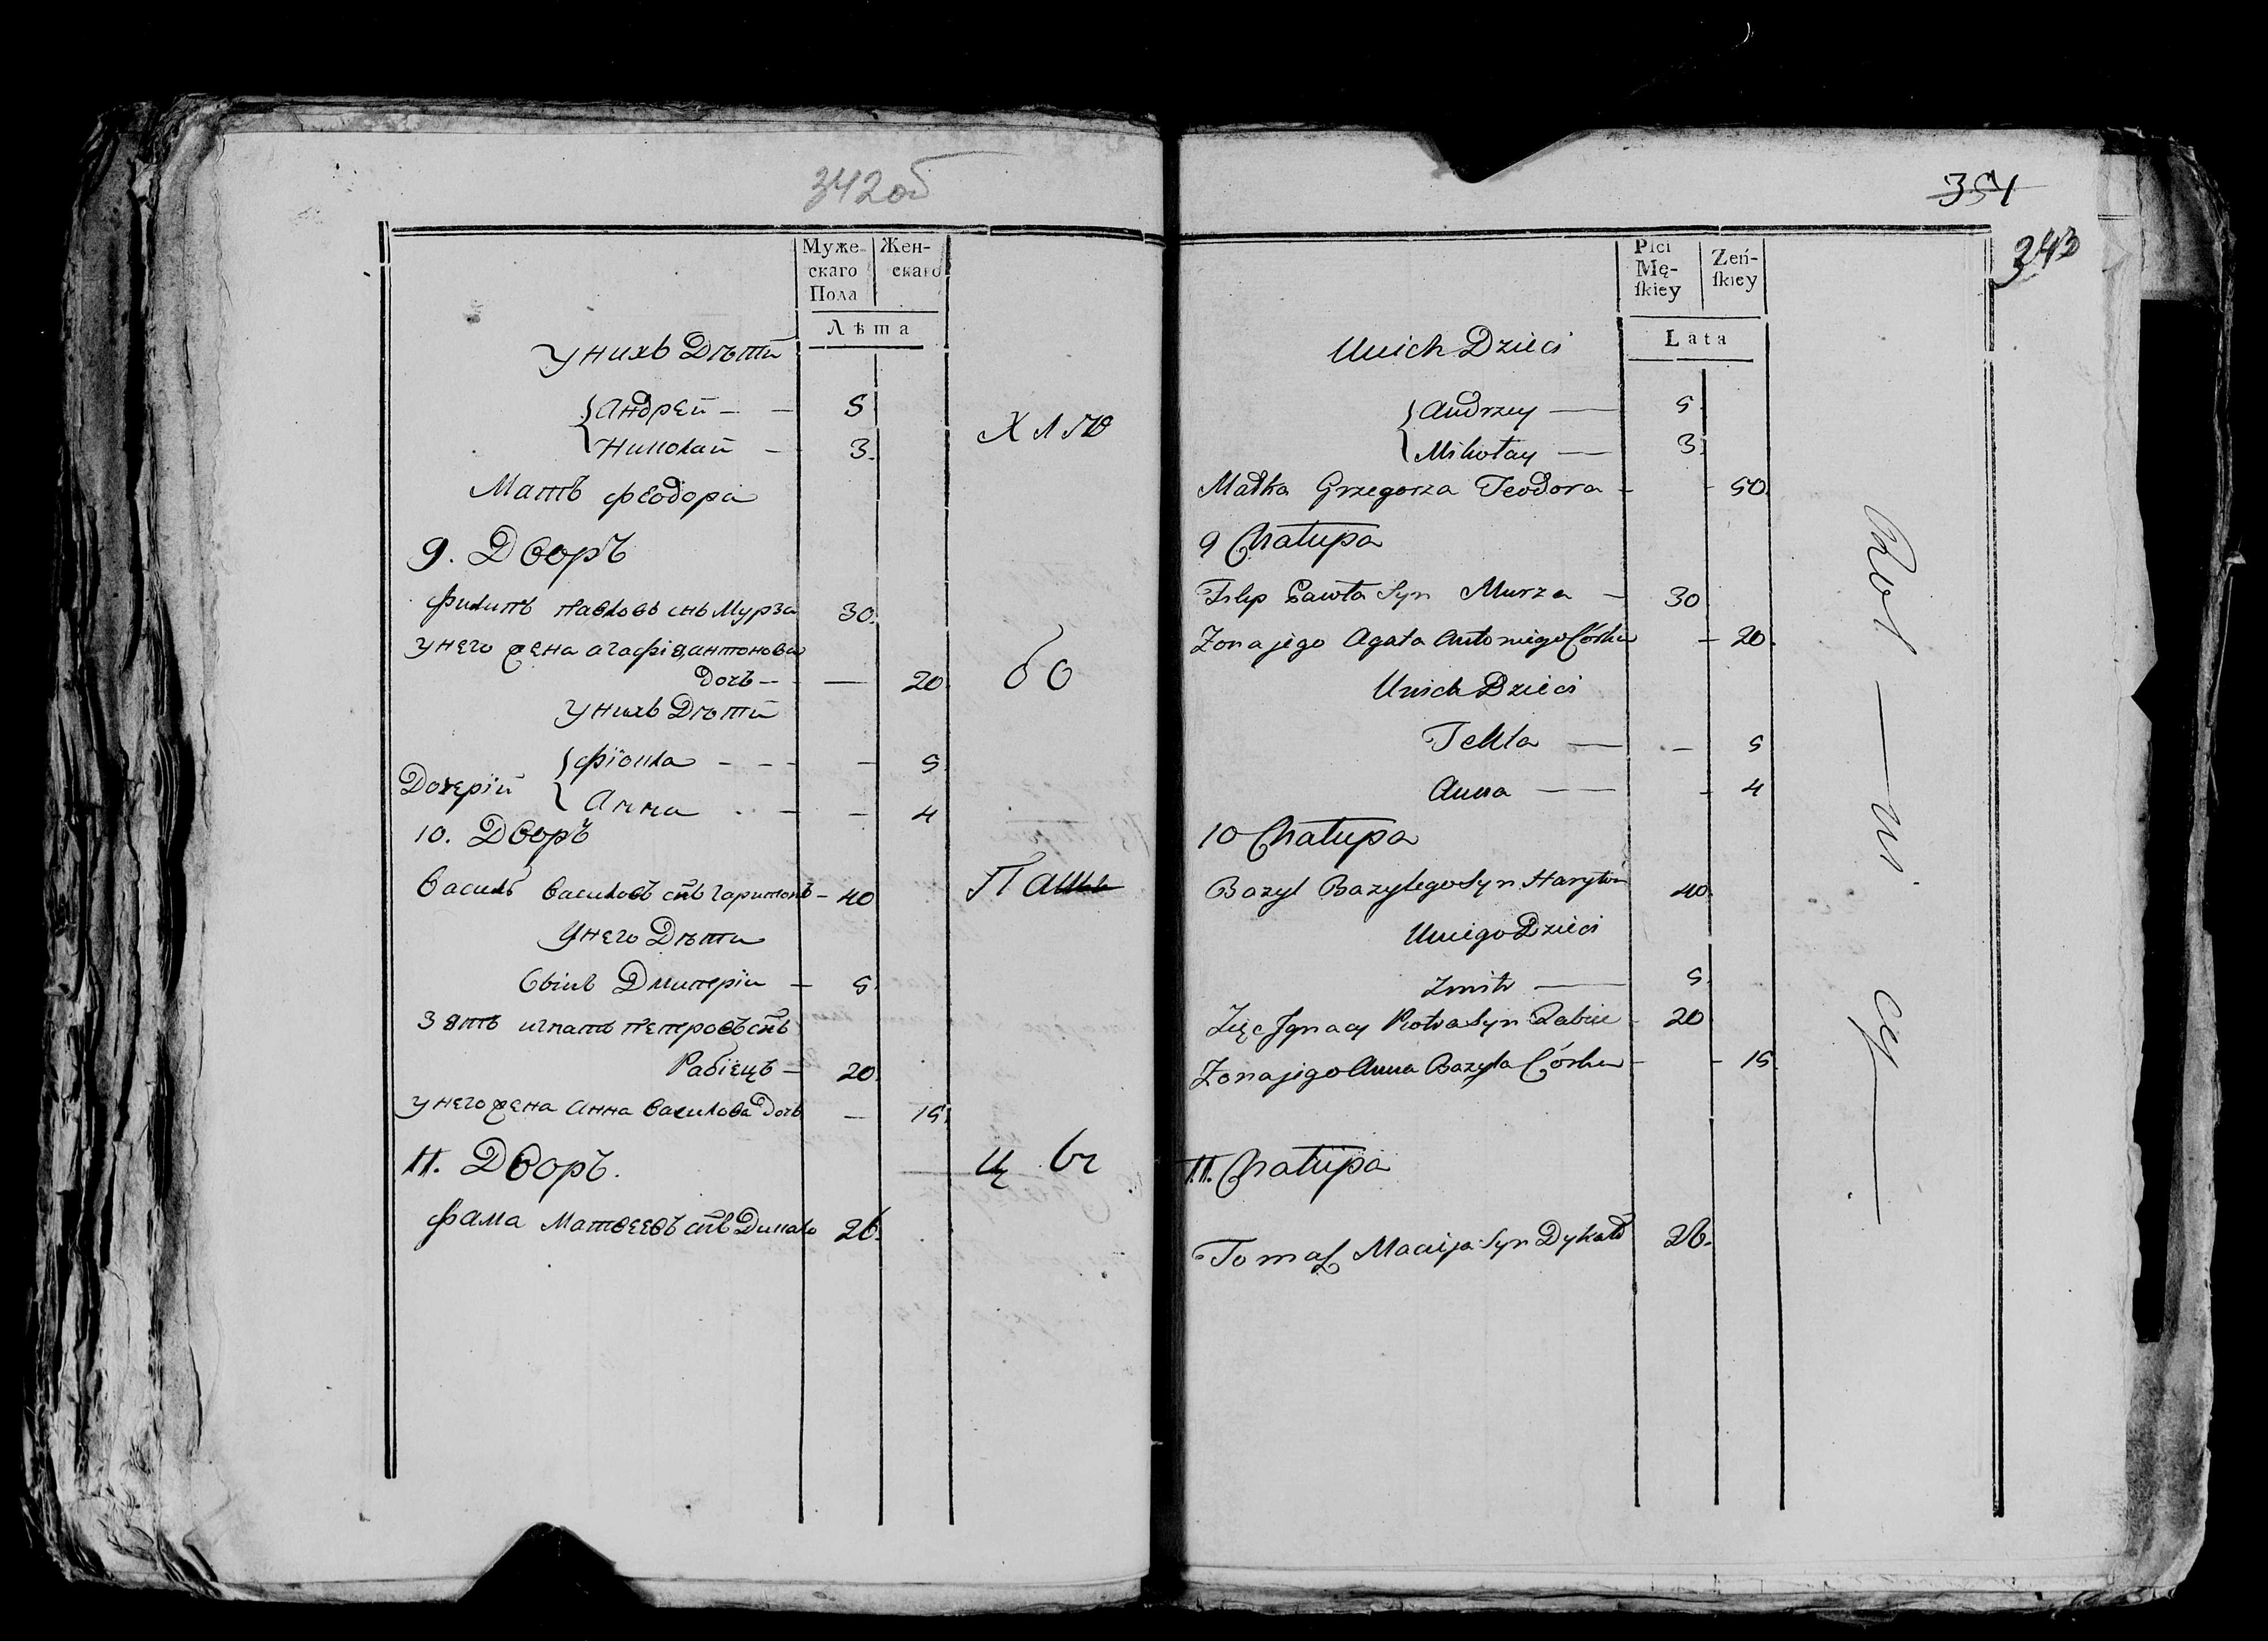 342об
Муже-
скаго
Пола
Жен-
скаго
Лѣта
У нихъ Дѣти
Андрей — — 5
Николай — 3.
Мать Феодора
9. Дворъ
Филипъ Павловъ снъ Мурза 30.
У него жена агафія антонова
дочь — — 20.
У нихъ Дѣти
Дочерій
Фіокла - - - — 5.
Анна . - — 4
10. Дворъ
Василь Василовъ снъ Гаритонъ – 40
У него Дѣти
Сынъ Дмитерій — 5.
Зять игнатъ Петровъ снъ
Рабіецъ — 20.
У него жена Анна Василова Дочь — 15.
11. Дворъ.
Фама Матвеевъ снъ Дикало 26.
бо
354
343
Płci
Mę-
ſkiey
Żeń-
ſkiey
Lata
U nich Dzieci
Andrzey — 5.
Mikołay — 3.
Matka Grzegorza Teodora - - 50.
9 Chałupa
Filip Pawła Syn Murza — 30
Zona jego Agata Antoniego Córka - 20.
U nich Dzieci
Tekla — . — 5
Anna — - 4
10 Chałupa
Bazyl Bazylego Syn Haryton 40.
U niego Dzieci
Zmitr — 5.
Zięc Jgnacy Piotra Syn Rabiec 20
Zona jego Anna Bazyla Córka - - 15.
11. Chałupa
Tomaſz Macieja Syn Dykało 26.